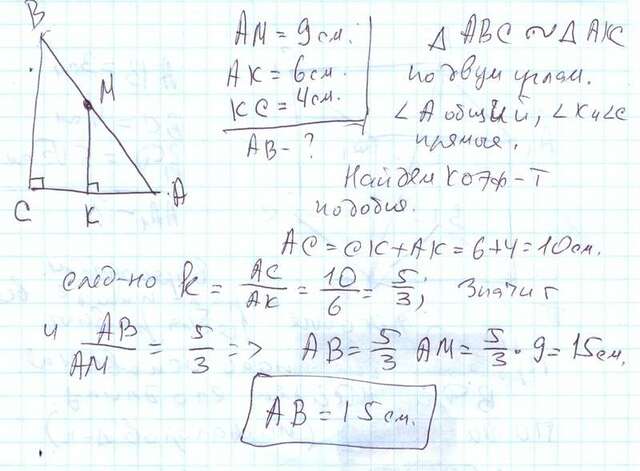 B
M
C
K
A
AM = 9см.
AK = 6см.
KC = 4см.
AB - ?
△ ABC ∾ △ AKC
по двум углам.
∠A общий, ∠K и ∠C
прямые.
Найдем коэф-т
подобия.
AC = CK + AK = 6 + 4 = 10см.
след-но k = AC/AK = 10/6 = 5/3; Значит
и AB/AM = 5/3 => AB = 5/3 AM = 5/3 · 9 = 15см.
AB = 15см.